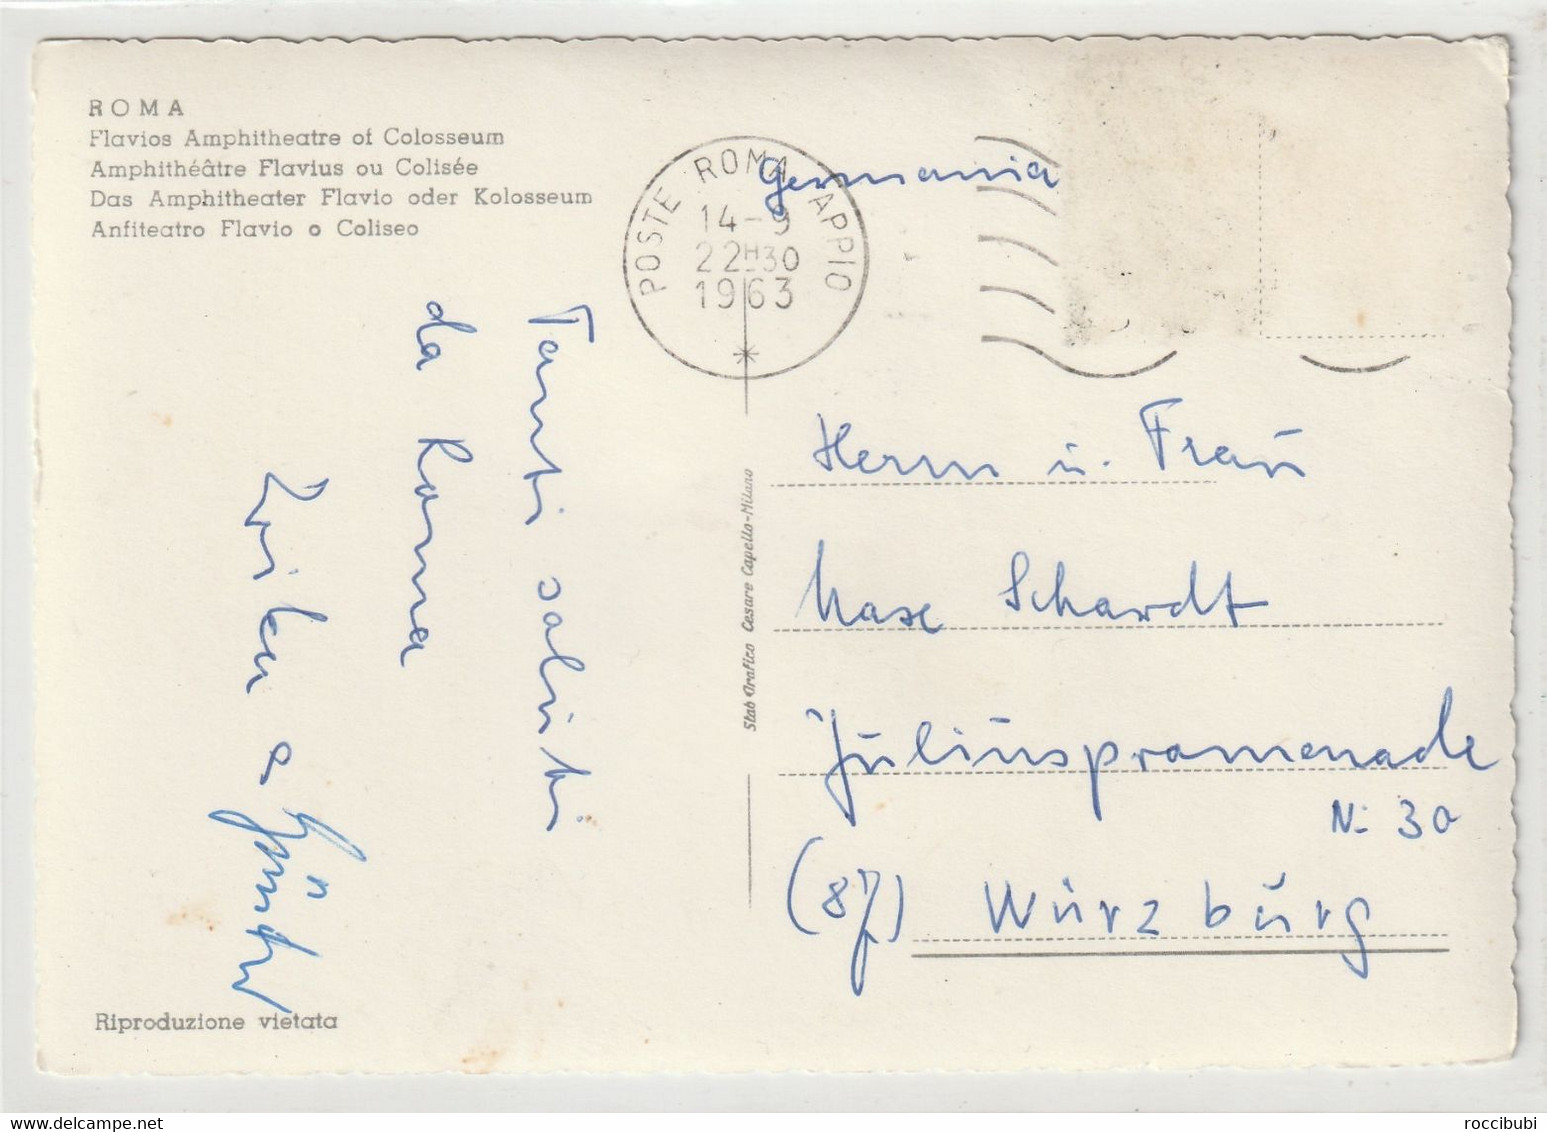 ROMA
Flavios Amphitheatre of Colosseum
Amphithéâtre Flavius ou Colisée
Das Amphitheater Flavio oder Kolosseum
Anfiteatro Flavio o Coliseo
POSTE ROMA APPIO
14-9
22H30
1963
Germania
Tanti saluti
da Roma
&
Herrn u. Frau
Max Schardt
Juliuspromenade
No 30
(87) Würzburg
Stab Grafico Cesare Capello-Milano
Riproduzione vietata
roccibubi